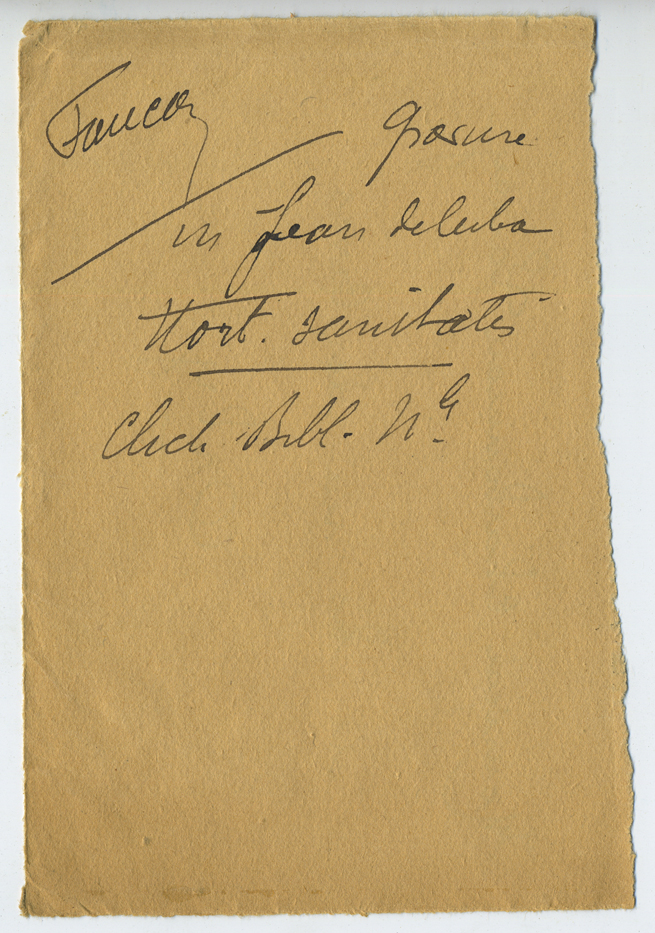 Faucon
gravure
in Jean de Cuba
Hort. sanitatis
Clich Bibl. Nle